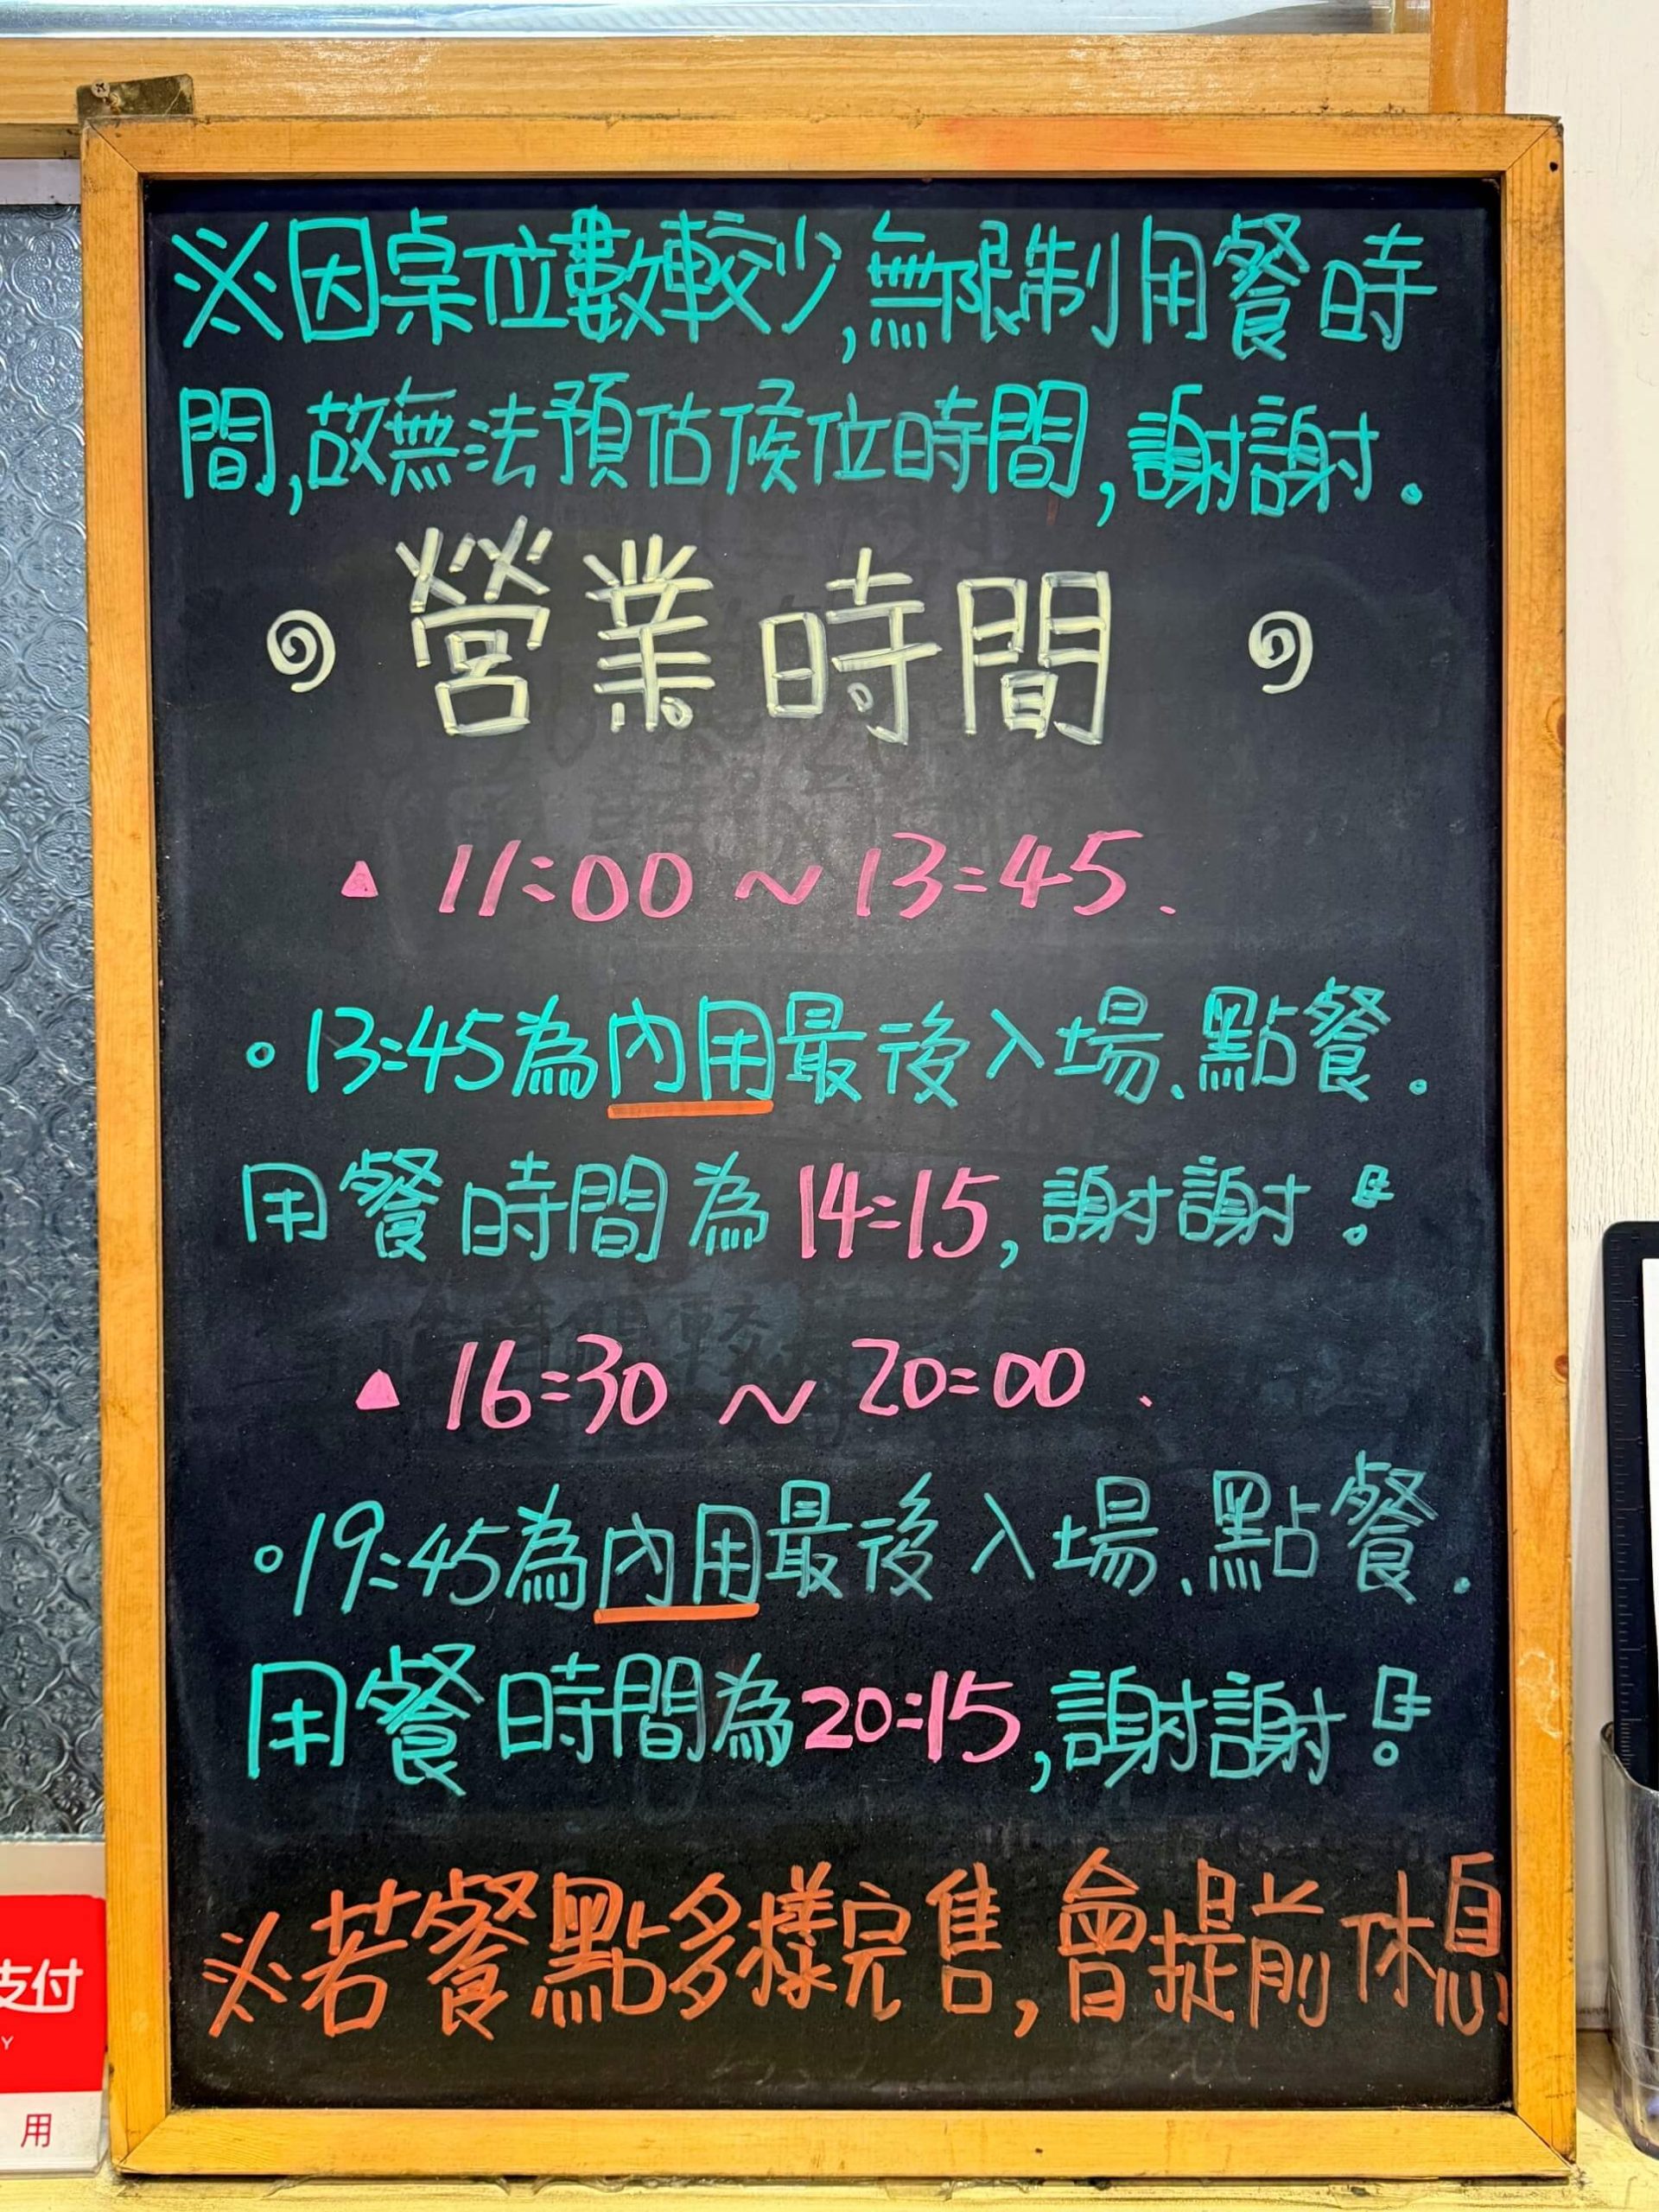 ※因桌位數較少,無限制用餐時
間,故無法預估候位時間,謝謝.
營業時間
▲ 11:00 ~ 13:45.
。13:45為內用最後入場、點餐.
用餐時間為14:15,謝謝!
▲ 16:30 ~ 20:00.
。19:45為內用最後入場、點餐.
用餐時間為20:15,謝謝!
※若餐點多樣完售,會提前休息
支付
Y
用